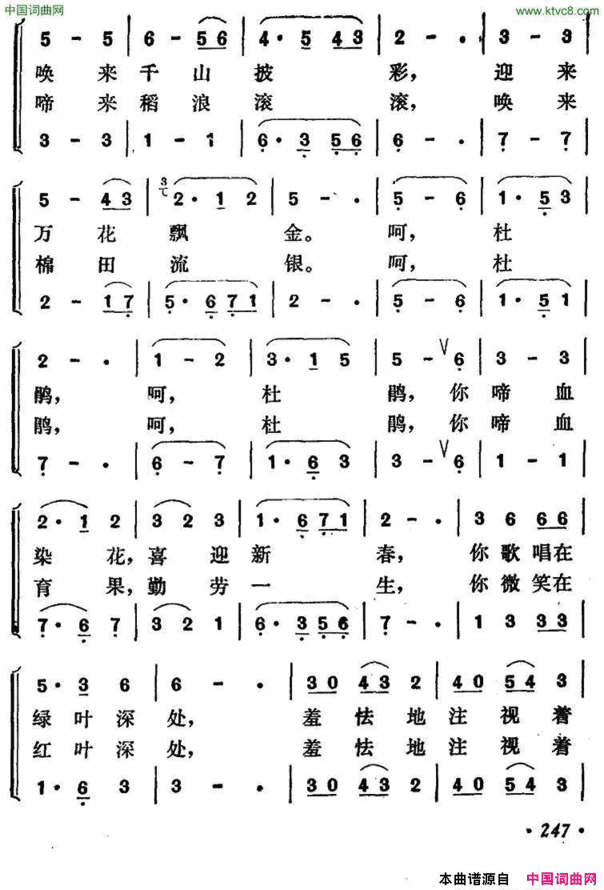 中国词曲网
www.ktvc8.com
5 - 5 | 6 - 56 | 4· 5 43 | 2 - · | 3 - 3
唤 来 千 山 披 彩, 迎 来
啼 来 稻 浪 滚 滚, 唤 来
3 - 3 | 1 - 1 | 6· 3 56 | 6 - · | 7 - 7
5 - 43 | 2· 1 2 | 5 - · | 5 - 6 | 1· 5 3
万 花 飘 金。 呵, 杜
棉 田 流 银。 呵, 杜
2 - 17 | 5· 6 71 | 2 - · | 5 - 6 | 1· 5 1
2 - · | 1 - 2 | 3· 1 5 | 5 - ∨ 6 | 3 - 3
鹃, 呵, 杜 鹃, 你 啼 血
鹃, 呵, 杜 鹃, 你 啼 血
7 - · | 6 - 7 | 1· 6 3 | 3 - ∨ 6 | 1 - 1
2· 1 2 | 3 2 3 | 1· 6 71 | 2 - · | 3 6 66
染 花, 喜 迎 新 春, 你 歌 唱 在
育 果, 勤 劳 一 生, 你 微 笑 在
7· 6 7 | 3 2 1 | 6· 3 56 | 7 - · | 1 3 33
5· 3 6 | 6 - · | 30 43 2 | 40 54 3
绿 叶 深 处, 羞 怯 地 注 视 着
红 叶 深 处, 羞 怯 地 注 视 着
1· 6 3 | 3 - · | 30 43 2 | 40 54 3
· 247 ·
本曲谱源自 中国词曲网